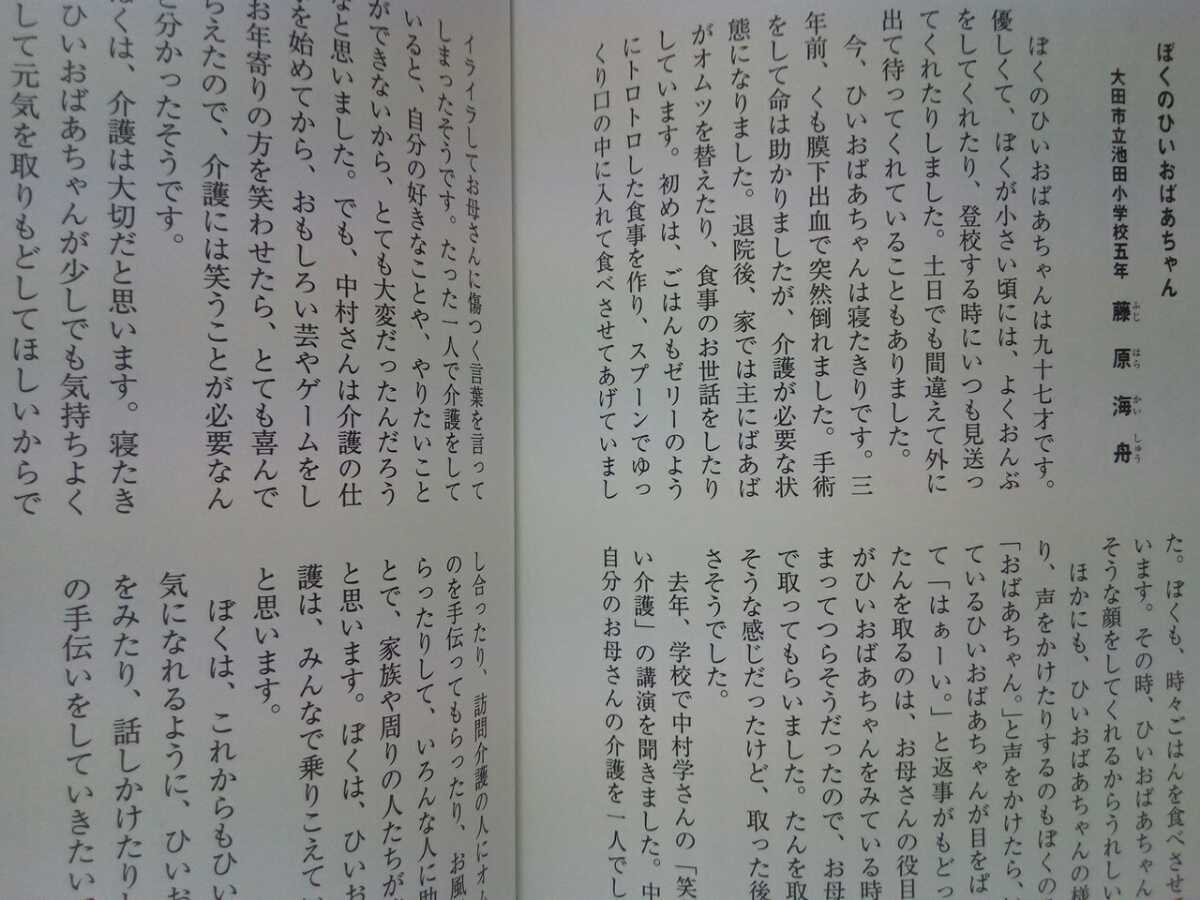 ぼくのひいおばあちゃん
大田市立池田小学校五年 藤原海舟
ふじ はら かい しゅう
ぼくのひいおばあちゃんは九十七才です。
優しくて、ぼくが小さい頃には、よくおんぶ
をしてくれたり、登校する時にいつも見送っ
てくれたりしました。土日でも間違えて外に
出て待ってくれていることもありました。
今、ひいおばあちゃんは寝たきりです。三
年前、くも膜下出血で突然倒れました。手術
をして命は助かりましたが、介護が必要な状
態になりました。退院後、家では主にばあば
がオムツを替えたり、食事のお世話をしたり
しています。初めは、ごはんもゼリーのよう
にトロトロした食事を作り、スプーンでゆっ
くり口の中に入れて食べさせてあげていまし
た。ぼくも、時々ごはんを食べさせて
います。その時、ひいおばあちゃん
そうな顔をしてくれるからうれしい
ほかにも、ひいおばあちゃんの様
り、声をかけたりするのもぼくの
「おばあちゃん。」と声をかけたら、
ているひいおばあちゃんが目をぱ
て「はぁーい。」と返事がもどっ
たんを取るのは、お母さんの役目
がひいおばあちゃんをみている時
まってつらそうだったので、お母
で取ってもらいました。たんを取
そうな感じだったけど、取った後
さそうでした。
去年、学校で中村学さんの「笑
い介護」の講演を聞きました。中
自分のお母さんの介護を一人でし
イライラしてお母さんに傷つく言葉を言って
しまったそうです。たった一人で介護をして
いると、自分の好きなことや、やりたいこと
ができないから、とても大変だったんだろう
なと思いました。でも、中村さんは介護の仕
を始めてから、おもしろい芸やゲームをし
お年寄りの方を笑わせたら、とても喜んで
らえたので、介護には笑うことが必要なん
と分かったそうです。
ぼくは、介護は大切だと思います。寝たき
ひいおばあちゃんが少しでも気持ちよく
して元気を取りもどしてほしいからで
し合ったり、訪問介護の人にオム
のを手伝ってもらったり、お風
らったりして、いろんな人に助
とで、家族や周りの人たちが
と思います。ぼくは、ひいお
護は、みんなで乗りこえてい
と思います。
ぼくは、これからもひい
気になれるように、ひいお
をみたり、話しかけたりし
の手伝いをしていきたい